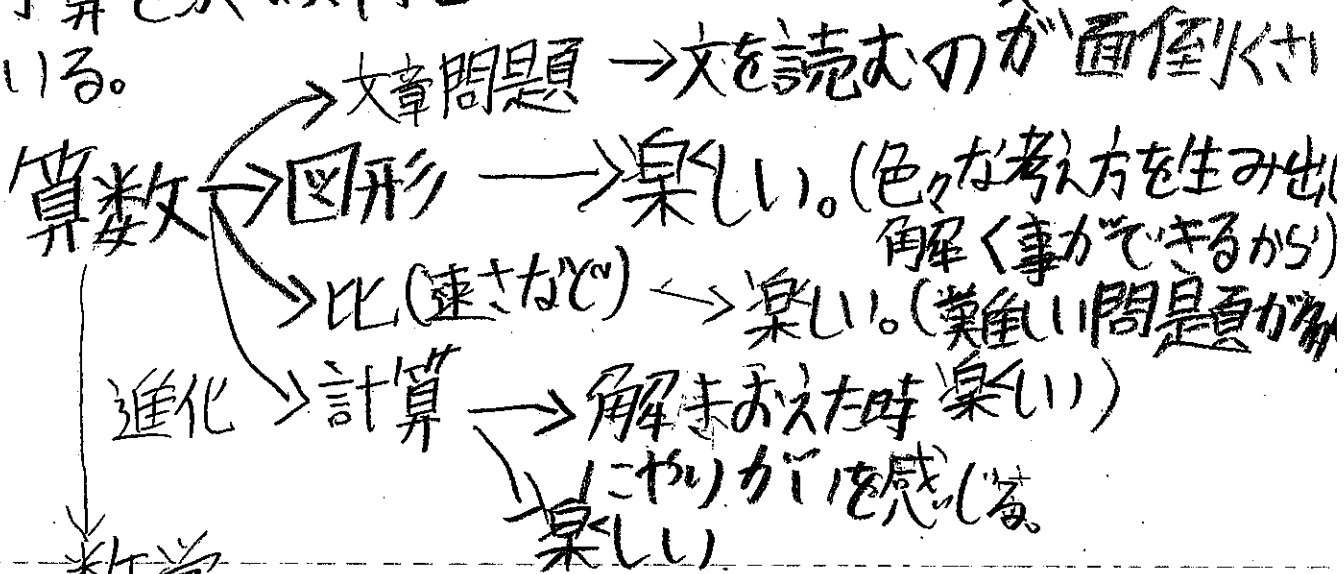 いる。
文章問題→文を読むのが面倒くさ
算数→図形→楽しい。(色々な考え方を生み出し
解く事ができるから)
比(速さなど)→楽しい。(難しい問題が
楽しい)
進化 計算→解きおえた時
にやりがいを感じる。
楽しい
数学